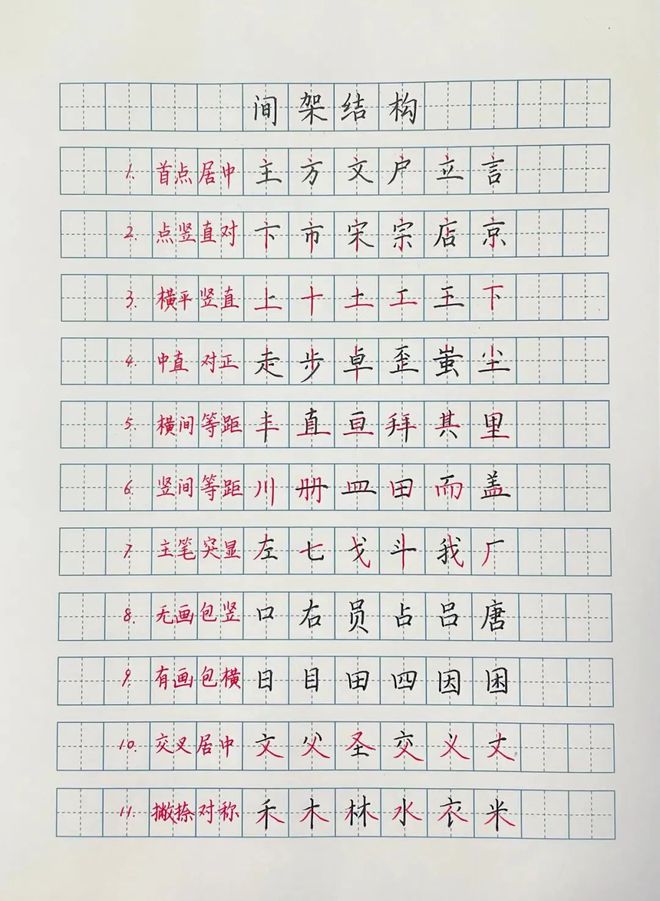 间架结构
1. 首点居中 主方文户立言
2. 点竖直对 卞市宋宗店京
3. 横平竖直 上十土工王下
4. 中直对正 走步卓歪蚩尘
5. 横间等距 丰直亘拜其里
6. 竖间等距 川册皿田而盖
7. 主笔突显 左七戈斗我厂
8. 无画包竖 口右员占吕唐
9. 有画包横 日目田四因困
10. 交叉居中 文父圣交义丈
11. 撇捺对称 禾木林水衣米